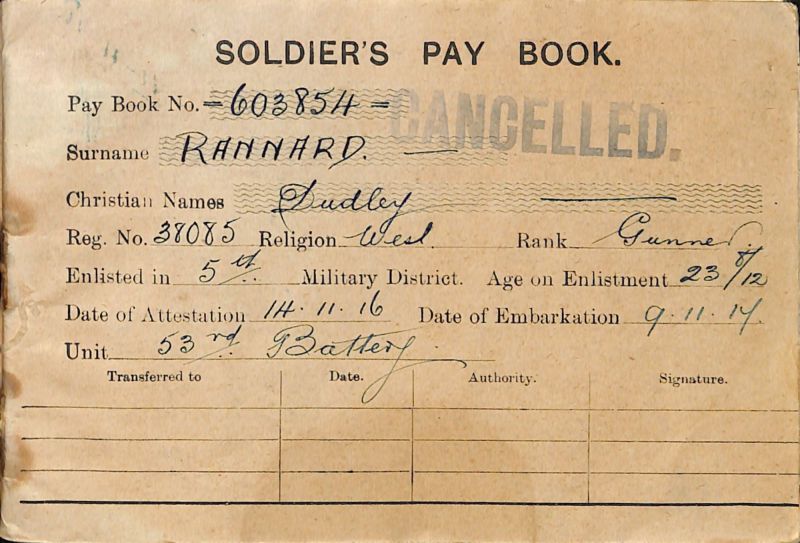 SOLDIER'S PAY BOOK.
Pay Book No. = 603854 =
CANCELLED.
Surname RANNARD. —
Christian Names Dudley —
Reg. No. 38085 Religion Wesl. Rank Gunner.
Enlisted in 5th. Military District. Age on Enlistment 23 8/12
Date of Attestation 14.11.16 Date of Embarkation 9.11.17.
Unit 53rd. Battery.
Transferred to Date. Authority. Signature.